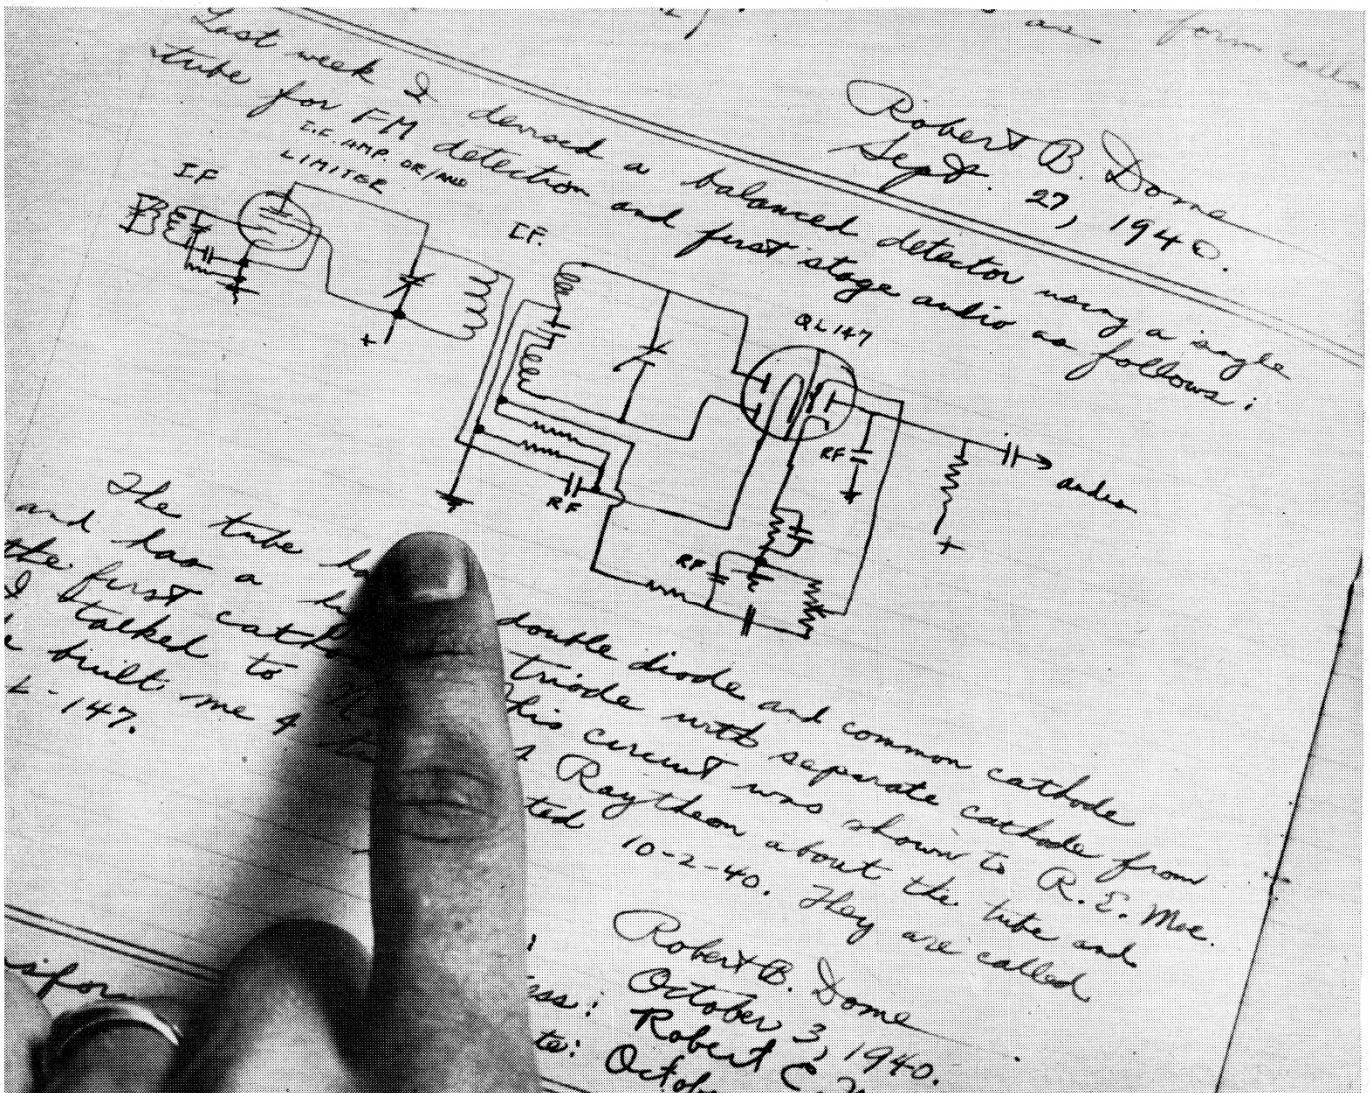 as form calle
Robert B. Dome
Sept. 27, 1940.
Last week I devised a balanced detector using a single
tube for FM detection and first stage audio as follows:
I.F. AMP. OR/AND
LIMITER
I.F
I.F.
QL147
RF
audio
RF
RF
+
+
The tube double diode and common cathode
and has a triode with separate cathode from
the first This circuit was shown to R. E. Moe.
I talked to Raytheon about the tube and
built me 4 10-2-40. They are called
L-147.
Robert B. Dome
October 3, 1940.
Robert E.